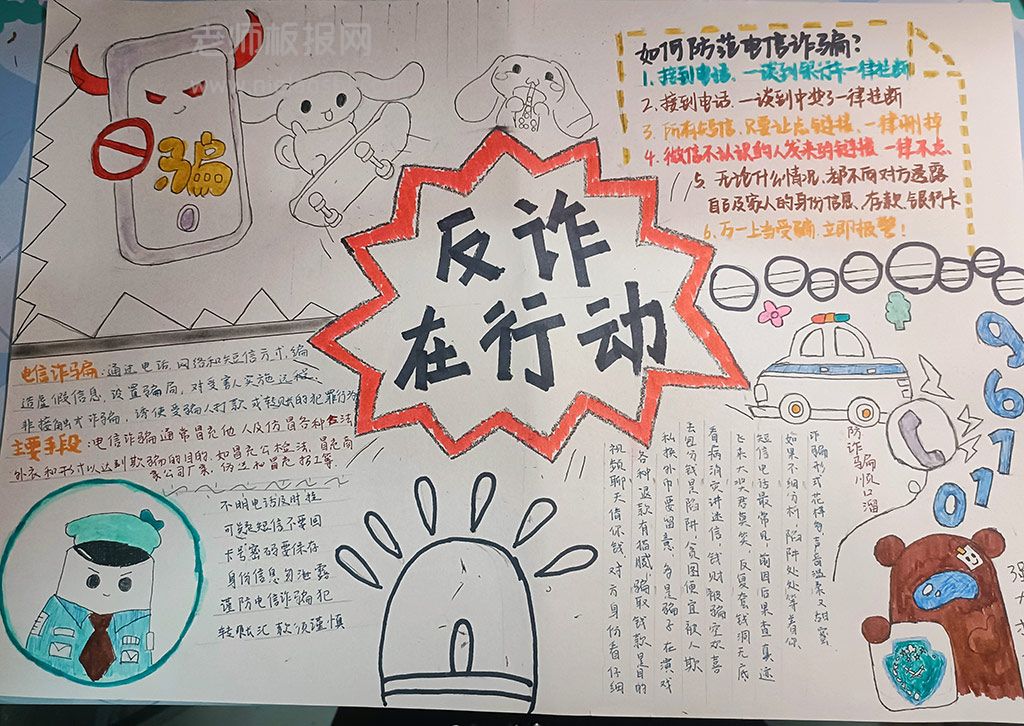 老师板报网
骗
反诈
在行动
如何防范电信诈骗?
1、接到电话、一谈到银行卡一律挂断
2、接到电话、一谈到中奖了一律挂断
3、所有短信、只要让点链接、一律删掉
4、微信不认识的人发来的链接一律不点
5、无论什么情况、都不向对方透露
自己及家人的身份信息、存款、银行卡
6、万一上当受骗、立即报警!
电信诈骗:通过电话、网络和短信方式,编
造虚假信息,设置骗局,对受害人实施远程、
非接触式诈骗,诱使受骗人打款或转账的犯罪行为
主要手段:电信诈骗通常冒充他人及仿冒各种合法
外衣和形式以达到欺骗的目的,如冒充公检法,冒充商
家公司厂家,伪造和冒充招工等、
不明电话及时挂
可疑短信不要回
卡号密码要保存
身份信息勿泄露
谨防电信诈骗犯
转账汇款须谨慎
96110
防诈骗顺口溜
诈骗形式花样多声音温柔又甜蜜
如果不细分析 陷阱处处等着你
短信电话最常见 前因后果查真迹
飞来大奖君莫笑、反复套钱洞无底
看病消灾讲迷信 钱财被骗空欢喜
去包分钱是陷阱贪图便宜被人欺
私换外币要留意、多是骗子在演戏
各种退款有指威骗取钱款是目的
视频聊天借你钱对方身份看仔细